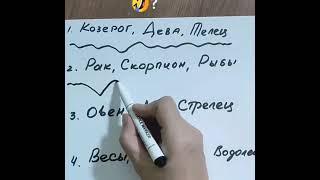 ?
1. Козерог, Дева, Телец
2. Рак, Скорпион, Рыбы
3. Овен Стрелец
4. Весы,